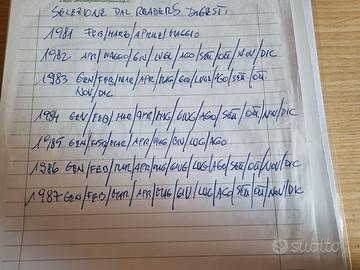 SELEZIONE DAL READERS DIGEST:
1981 FEB/MARZ/APRILE/MAGGIO
1982 APR/MAGGIO/GIU/LUGL/AGO/SETT/OTT/NOV/DIC
1983 GEN/FEB/MAR/APR/MAG/GIU/LUGL/AGO/SETT/OTT.
NOV/DIC
1984 GEN/FEB/MAR/APR/MAG/GIUG/AGO/SETT/OTT/NOV/DIC
1985 GEN/FEB/MAR/APR/MAG/GIU/LUG/AGO
1986 GEN/FEB/MAR/APR/MAG/GIUG/LUG/AGO/SETT/OTT/NOV/DIC
1987 GEN/FEB/MAR/APR/MAG/GIU/LUG/AGO/SETT/OTT/NOV/DIC
subito